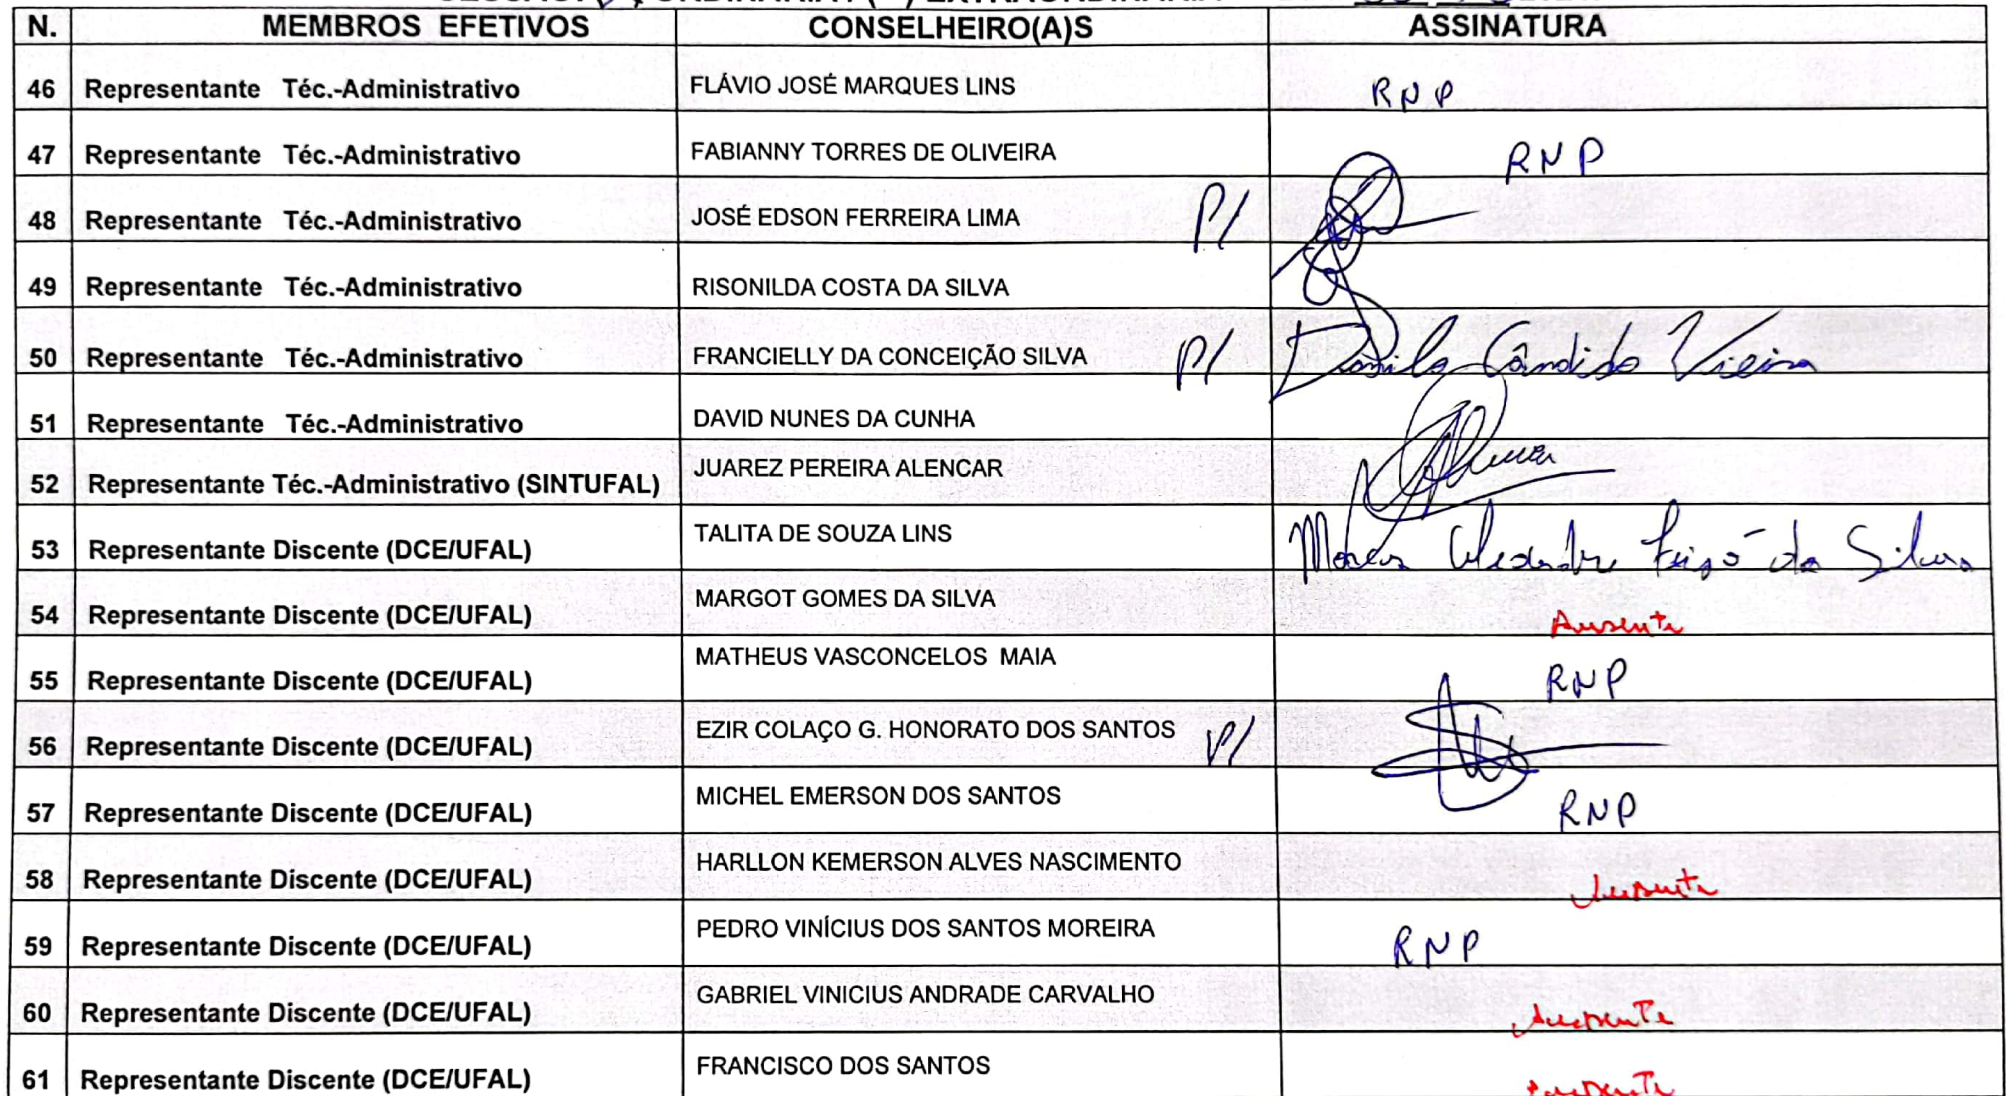 N. MEMBROS EFETIVOS CONSELHEIRO(A)S ASSINATURA
46 Representante Téc.-Administrativo FLÁVIO JOSÉ MARQUES LINS RNP
47 Representante Téc.-Administrativo FABIANNY TORRES DE OLIVEIRA RNP
48 Representante Téc.-Administrativo JOSÉ EDSON FERREIRA LIMA P/
49 Representante Téc.-Administrativo RISONILDA COSTA DA SILVA
50 Representante Téc.-Administrativo FRANCIELLY DA CONCEIÇÃO SILVA P/ Danilo Cândido Vieira
51 Representante Téc.-Administrativo DAVID NUNES DA CUNHA
52 Representante Téc.-Administrativo (SINTUFAL) JUAREZ PEREIRA ALENCAR
53 Representante Discente (DCE/UFAL) TALITA DE SOUZA LINS Marcus Alexandre Feijó da Silva
54 Representante Discente (DCE/UFAL) MARGOT GOMES DA SILVA Ausente
55 Representante Discente (DCE/UFAL) MATHEUS VASCONCELOS MAIA RNP
56 Representante Discente (DCE/UFAL) EZIR COLAÇO G. HONORATO DOS SANTOS P/
57 Representante Discente (DCE/UFAL) MICHEL EMERSON DOS SANTOS RNP
58 Representante Discente (DCE/UFAL) HARLLON KEMERSON ALVES NASCIMENTO Ausente
59 Representante Discente (DCE/UFAL) PEDRO VINÍCIUS DOS SANTOS MOREIRA RNP
60 Representante Discente (DCE/UFAL) GABRIEL VINICIUS ANDRADE CARVALHO Ausente
61 Representante Discente (DCE/UFAL) FRANCISCO DOS SANTOS Ausente